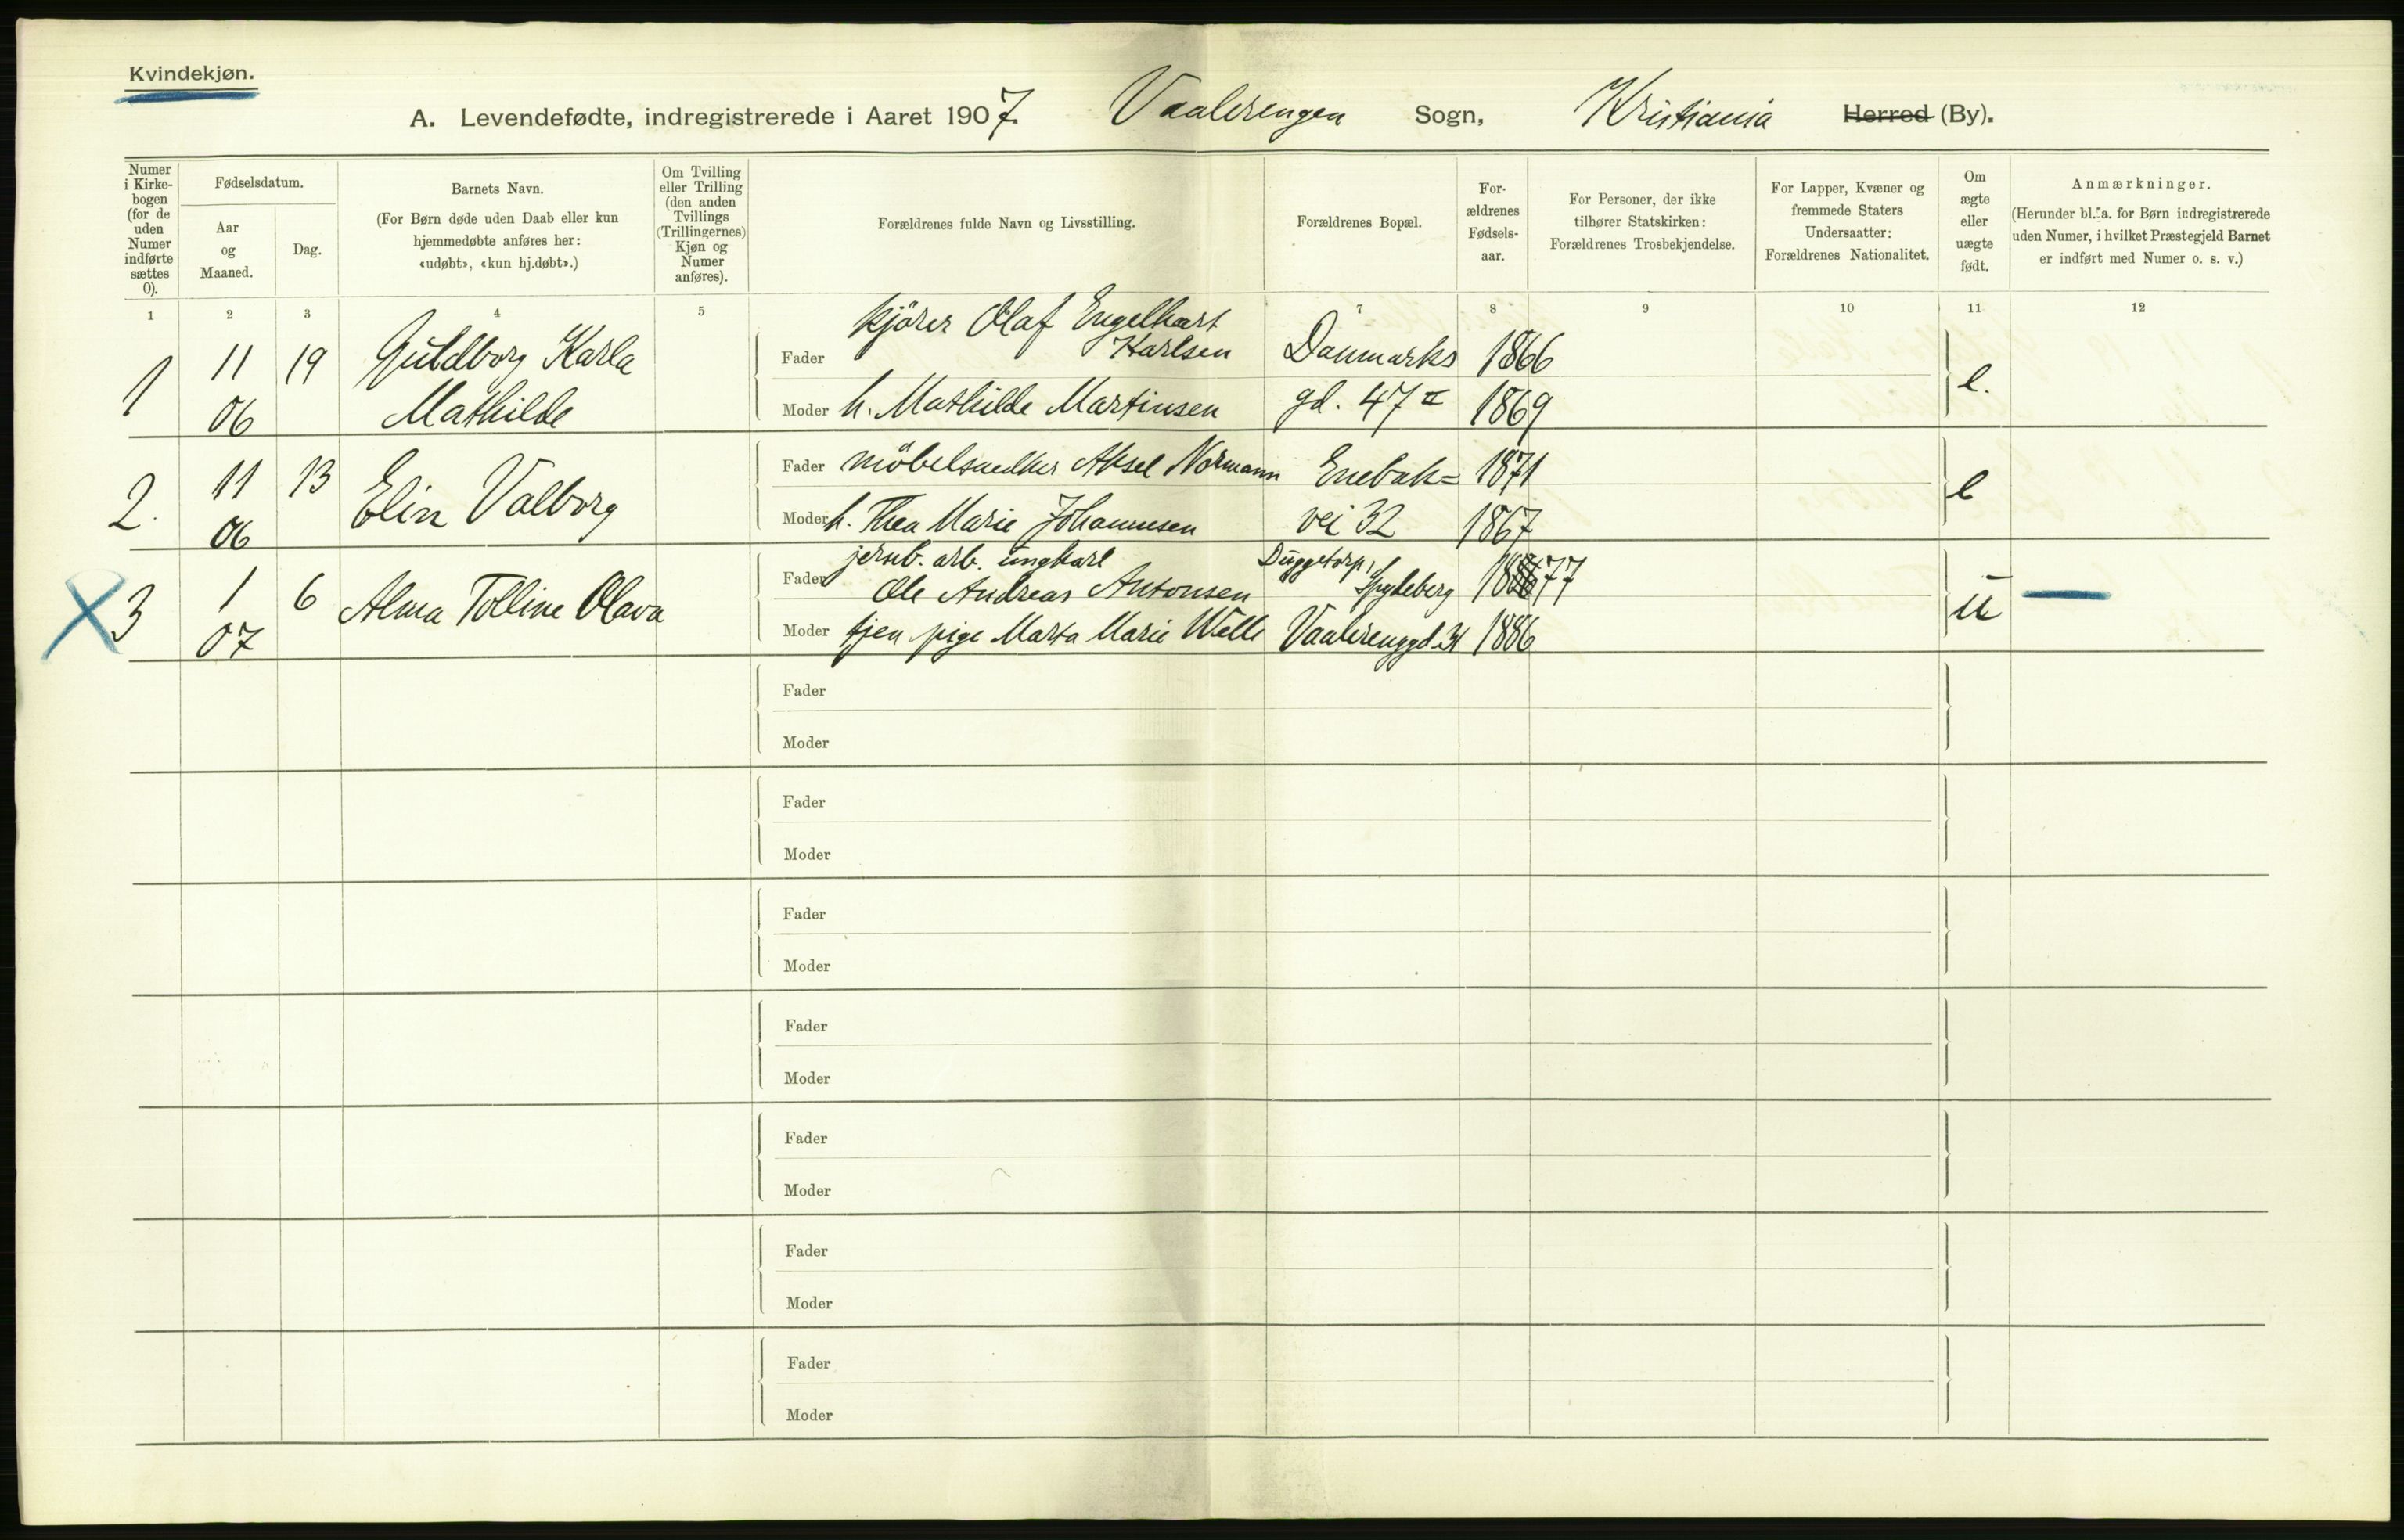 Kvindekjøn.
A. Levendefødte, indregistrerede i Aaret 1907. Vaalerengen Sogn, Kristiania Herred (By).
Numer i Kirkebogen (for de uden Numer indførte sættes 0).
Fødselsdatum.
Aar og Maaned.
Dag.
Barnets Navn.
(For Børn døde uden Daab eller kun hjemmedøbte anføres her: «udøbt», «kun hj.døbt».)
Om Tvilling eller Trilling (den anden Tvillings (Trillingernes) Kjøn og Numer anføres).
Forældrenes fulde Navn og Livsstilling.
Forældrenes Bopæl.
Forældrenes Fødselsaar.
For Personer, der ikke tilhører Statskirken: Forældrenes Trosbekjendelse.
For Lapper, Kvæner og fremmede Staters Undersaatter: Forældrenes Nationalitet.
Om ægte eller uægte født.
Anmærkninger.
(Herunder bl. a. for Børn indregistrerede uden Numer, i hvilket Præstegjeld Barnet er indført med Numer o. s. v.)
1 2 3 4 5 7 8 9 10 11 12
1 11 06 19 Guldborg Karla Mathilde
Fader kjörer Olaf Engelhart Karlsen Danmarks 1866
Moder h. Mathilde Martinsen gd. 47 II 1869 e.
2. 11 06 13 Elin Valborg
Fader möbelsnedker Aksel Normann Enebak= 1871
Moder h. Thea Marie Johannesen vei 32 1867 e
X 3 1 07 6 Alma Tolline Olava
Fader jernb. arb. ungkarl Ole Andreas Antonsen Duggetorp, Spydeberg 1877
Moder tjen pige Marta Marie Welle Vaalerenggd 31 1886 u —
Fader
Moder
Fader
Moder
Fader
Moder
Fader
Moder
Fader
Moder
Fader
Moder
Fader
Moder